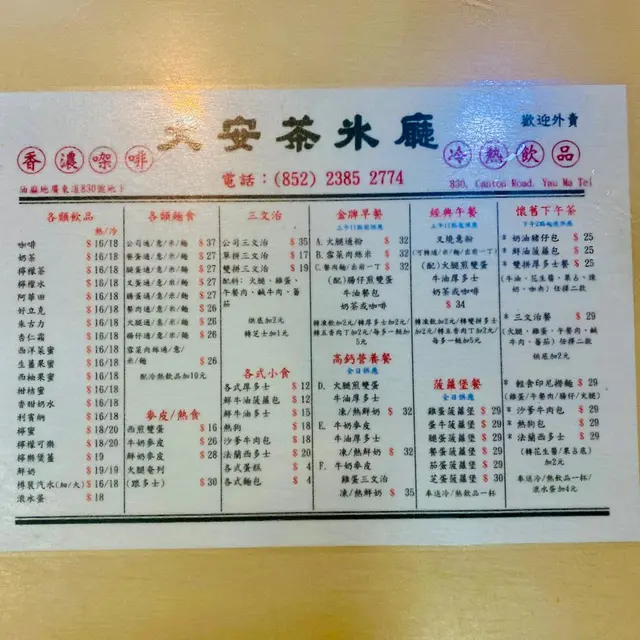 大安茶冰廳
歡迎外賣
香濃㗎啡
冷熱飲品
油麻地廣東道830號地下
電話：(852) 2385 2774
830, Canton Road, Yau Ma Tei
各類飲品
熱/冷
咖啡 $16/18
奶茶 $16/18
檸檬茶 $16/18
檸檬水 $16/18
阿華田 $16/18
好立克 $16/18
朱古力 $16/18
杏仁霜 $16/18
西洋菜蜜 $16/18
生薑蜜 $16/18
西柚蜜 $16/18
柑桔蜜 $16/18
香甜奶水 $16/18
利賓納 $16/18
檸蜜 $18/20
檸檬可樂 $18/20
檸樂煲薑 $19
鮮奶 $19/19
樽裝汽水(細/大) $16/18
滾水蛋 $18
各類麵食
公司通/意/米/麵 $37
餐蛋通/意/米/麵 $27
腿蛋通/意/米/麵 $27
叉蛋通/意/米/麵 $27
腸蛋通/意/米/麵 $27
餐肉通/意/米/麵 $26
火腿通/意/米/麵 $26
腸仔通/意/米/麵 $26
雪菜肉絲通/意/
米/麵 $26
配冷熱飲品加10元
麥皮/熱食
西煎雙蛋 $16
牛奶麥皮 $26
鮮奶麥皮 $28
火腿奄列
(跟多士) $30
三文治
公司三文治 $35
單拼三文治 $17
雙拼三文治 $19
配料：火腿、雞蛋、
午餐肉、鹹牛肉、蕃
茄
烘底加2元
轉芝士加1元
各式小食
各式厚多士 $12
鮮油菠蘿包 $12
鮮油多士 $15
熱狗 $18
沙爹牛肉包 $18
法蘭西多士 $20
各式蛋糕 $4
各式麵包 $4
金牌早餐
上午11點前供應
A. 火腿通粉 $32
B. 雪菜肉絲米 $32
C. 餐肉麵/出前一丁 $32
(配)腸仔煎雙蛋
牛油餐包
奶茶或咖啡
轉凍飲加2元/轉厚多士加2元/
轉五香肉丁加2元/每多一餸加
5元
高鈣營養餐
全日供應
D. 火腿煎雙蛋
牛油厚多士
凍/熱鮮奶 $32
E. 牛奶麥皮
牛油厚多士
凍/熱鮮奶 $32
F. 牛奶麥皮
雞蛋三文治
凍/熱鮮奶 $35
經典午餐
上午11點起供應
叉燒意粉
(可轉通/米/麵/出前一丁)
(配)火腿煎雙蛋
牛油厚多士
奶茶或咖啡
$34
轉凍飲加2元/轉雙拼多士
加2元/轉五香肉丁加2元/
每多一餸加5元
菠蘿堡餐
全日供應
雞蛋菠蘿堡 $29
蛋牛菠蘿堡 $29
腿蛋菠蘿堡 $29
餐蛋菠蘿堡 $29
茄蛋菠蘿堡 $29
芝蛋菠蘿堡 $30
奉送冷/熱飲品一杯
懷舊下午茶
下午2點起供應
* 奶油豬仔包 $25
* 鮮油菠蘿包 $25
* 雙拼厚多士 $26
(牛油、花生醬、果占、煉
奶、咖央) 任擇二款
* 三文治餐 $29
(火腿、雞蛋、午餐肉、鹹
牛肉、蕃茄) 任擇二款
烘底加2元
* 輕食印尼撈麵 $29
(雞蛋/午餐肉/腸仔/火腿)
* 沙爹牛肉包 $29
* 熱狗包 $29
* 法蘭西多士 $29
(轉花生醬/果占底)
加2元
奉送冷/熱飲品一杯/
滾水蛋加4元